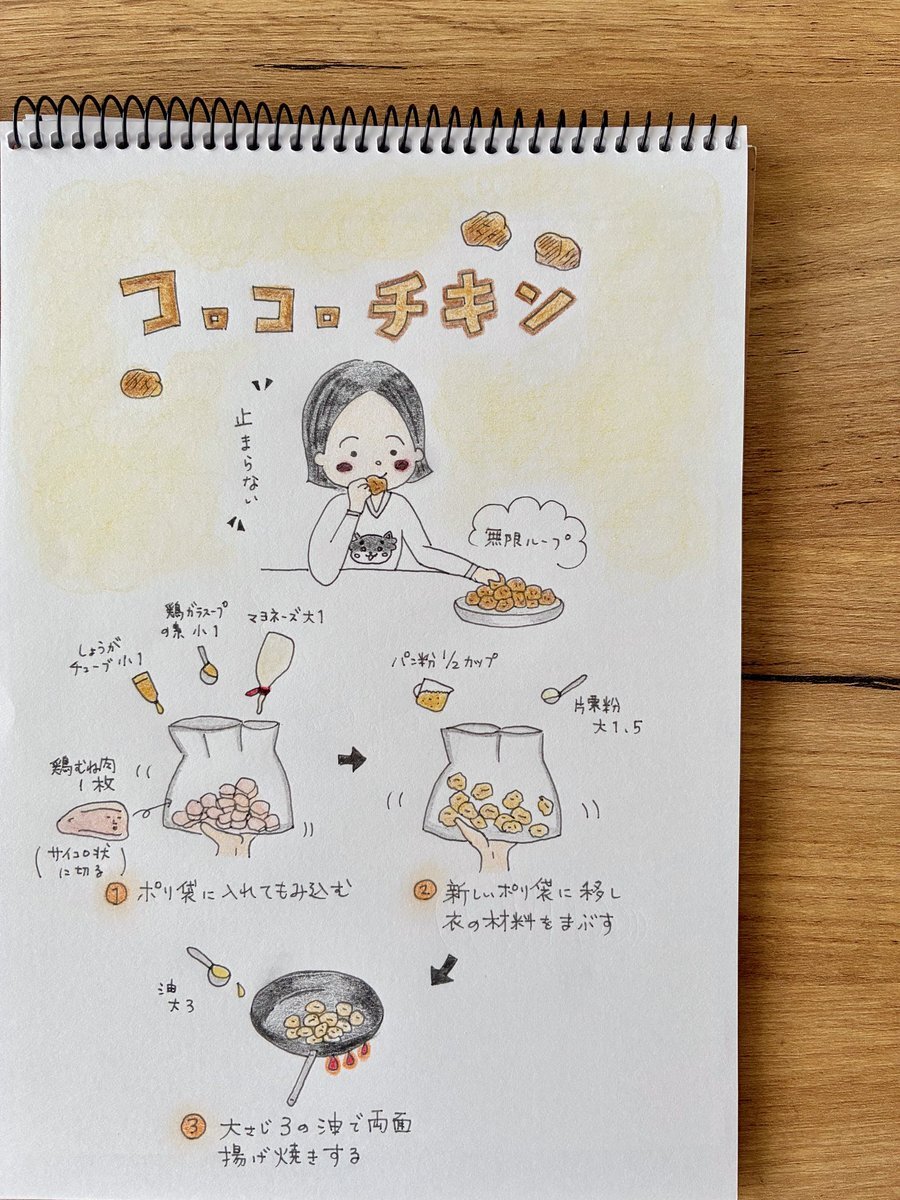 コロコロチキン
止まらない
無限ループ
しょうが
チューブ小1
鶏ガラスープ
の素 小1
マヨネーズ大1
鶏むね肉
1枚
(サイコロ状
に切る)
① ポリ袋に入れてもみ込む
パン粉 1/2カップ
片栗粉
大1.5
② 新しいポリ袋に移し
衣の材料をまぶす
油
大3
③ 大さじ3の油で両面
揚げ焼きする